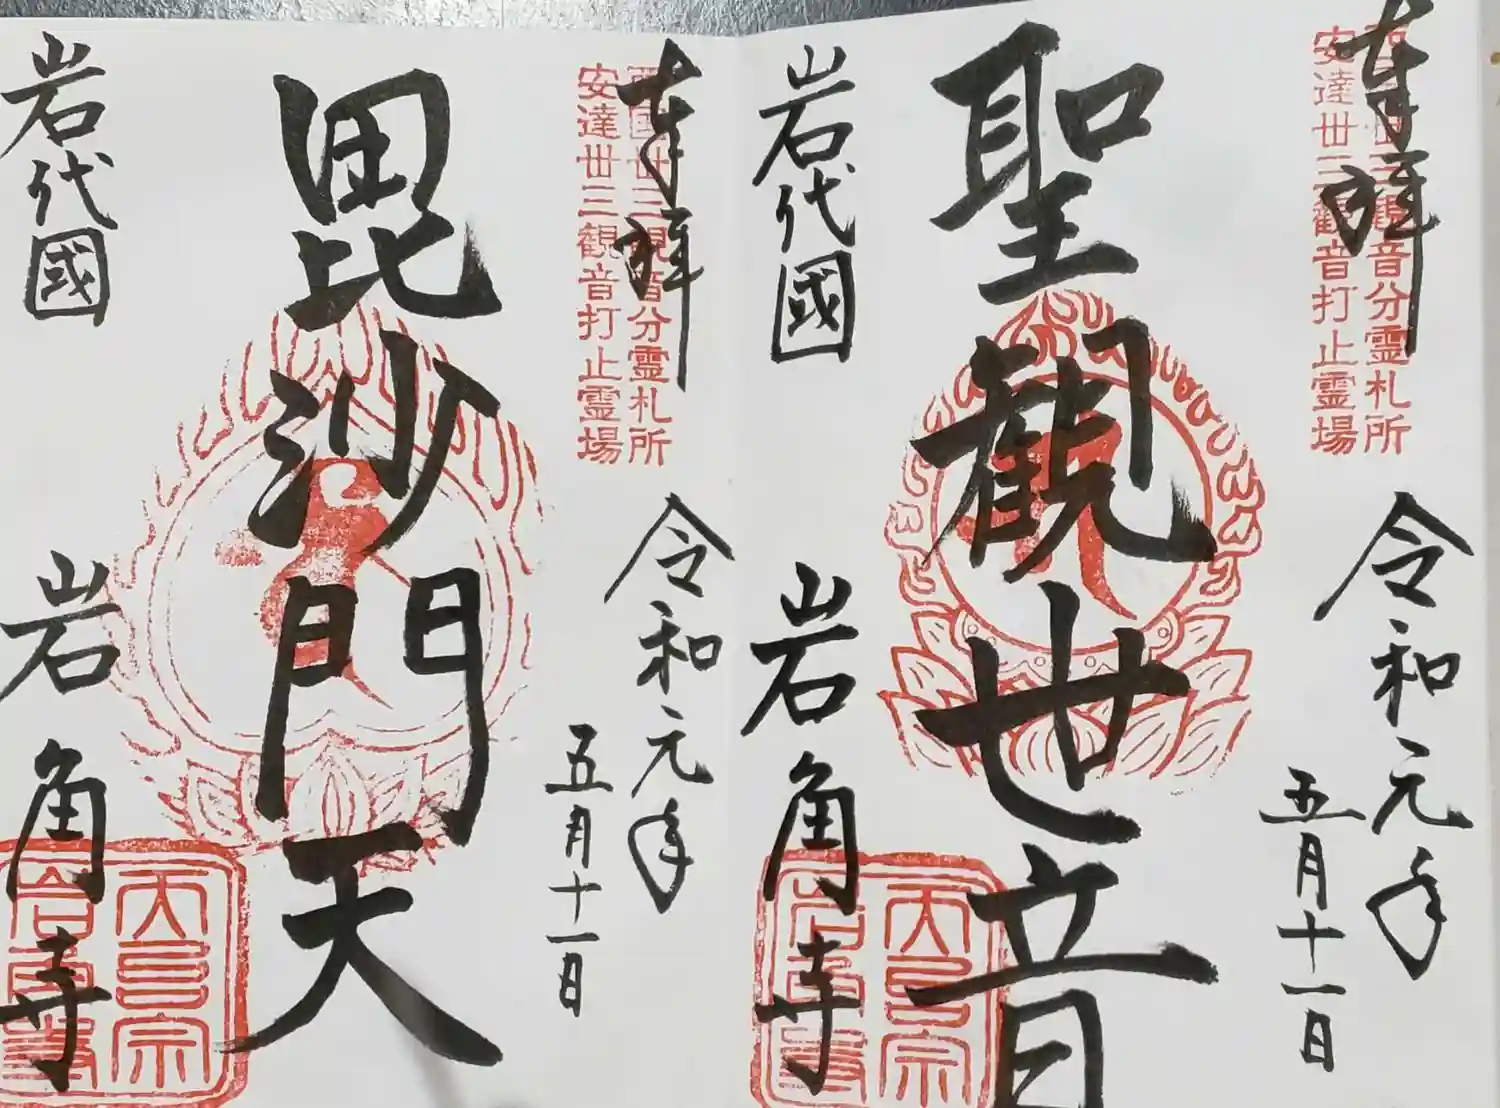 奉拝
西國丗三観音分霊札所
安達丗三観音打止霊場
令和元年
五月十一日
聖観世音
岩代國
岩角寺
奉拝
西國丗三観音分霊札所
安達丗三観音打止霊場
令和元年
五月十一日
毘沙門天
岩代國
岩角寺